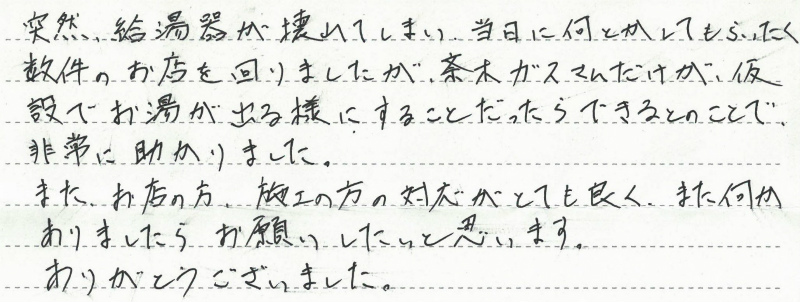 突然、給湯器が壊れてしまい、当日に何とかしてもらいたく
数件のお店を回りましたが、茶木ガスさんだけが、仮
設でお湯が出る様にすることだったらできるとのことで、
非常に助かりました。
また、お店の方、施工の方の対応がとても良く、また何か
ありましたらお願いしたいと思います。
ありがとうございました。